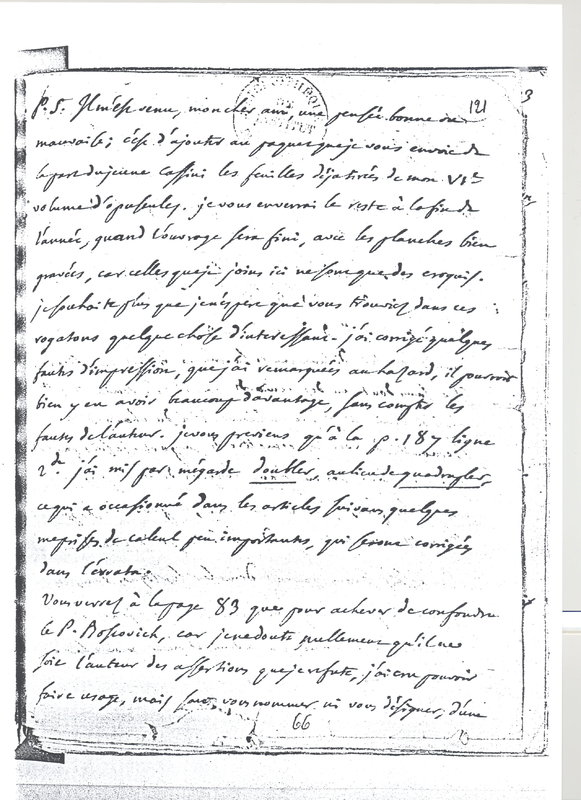 121
3
P.S. Il m'est venu, mon cher ami, une pensée bonne ou
mauvaise; c'est d'ajouter au paquet que je vous envoie de
la part du jeune Cassini les feuilles déja tirées de mon VIe
volume d'opuscules. je vous enverrai le reste à la fin de
l'année, quand l'ouvrage sera fini, avec les planches bien
gravées, car celles que je joins ici ne sont que des croquis.
je souhaite plus que je n'espere que vous trouviez dans ces
rogatons quelque chose d'interessant. j'ai corrigé quelques
fautes d'impression, que j'ai remarquées au hasard, il pourroit
bien y en avoir beaucoup davantage, sans compter les
fautes de l'auteur. je vous previens qu'à la p. 187 ligne
2de j'ai mis par mégarde doubler, au lieu de quadrupler,
ce qui a occasionné dans les articles suivans quelques
meprises de calcul peu importantes, qui seront corrigées
dans l'errata.
Vous verrez à la page 83 que pour achever de confondre
le P. Boscovich, car je ne doute nullement qu'il ne
soit l'auteur des assertions que je refute, j'ai cru pouvoir
faire usage, mais sans vous nommer ni vous désigner, d'une
66